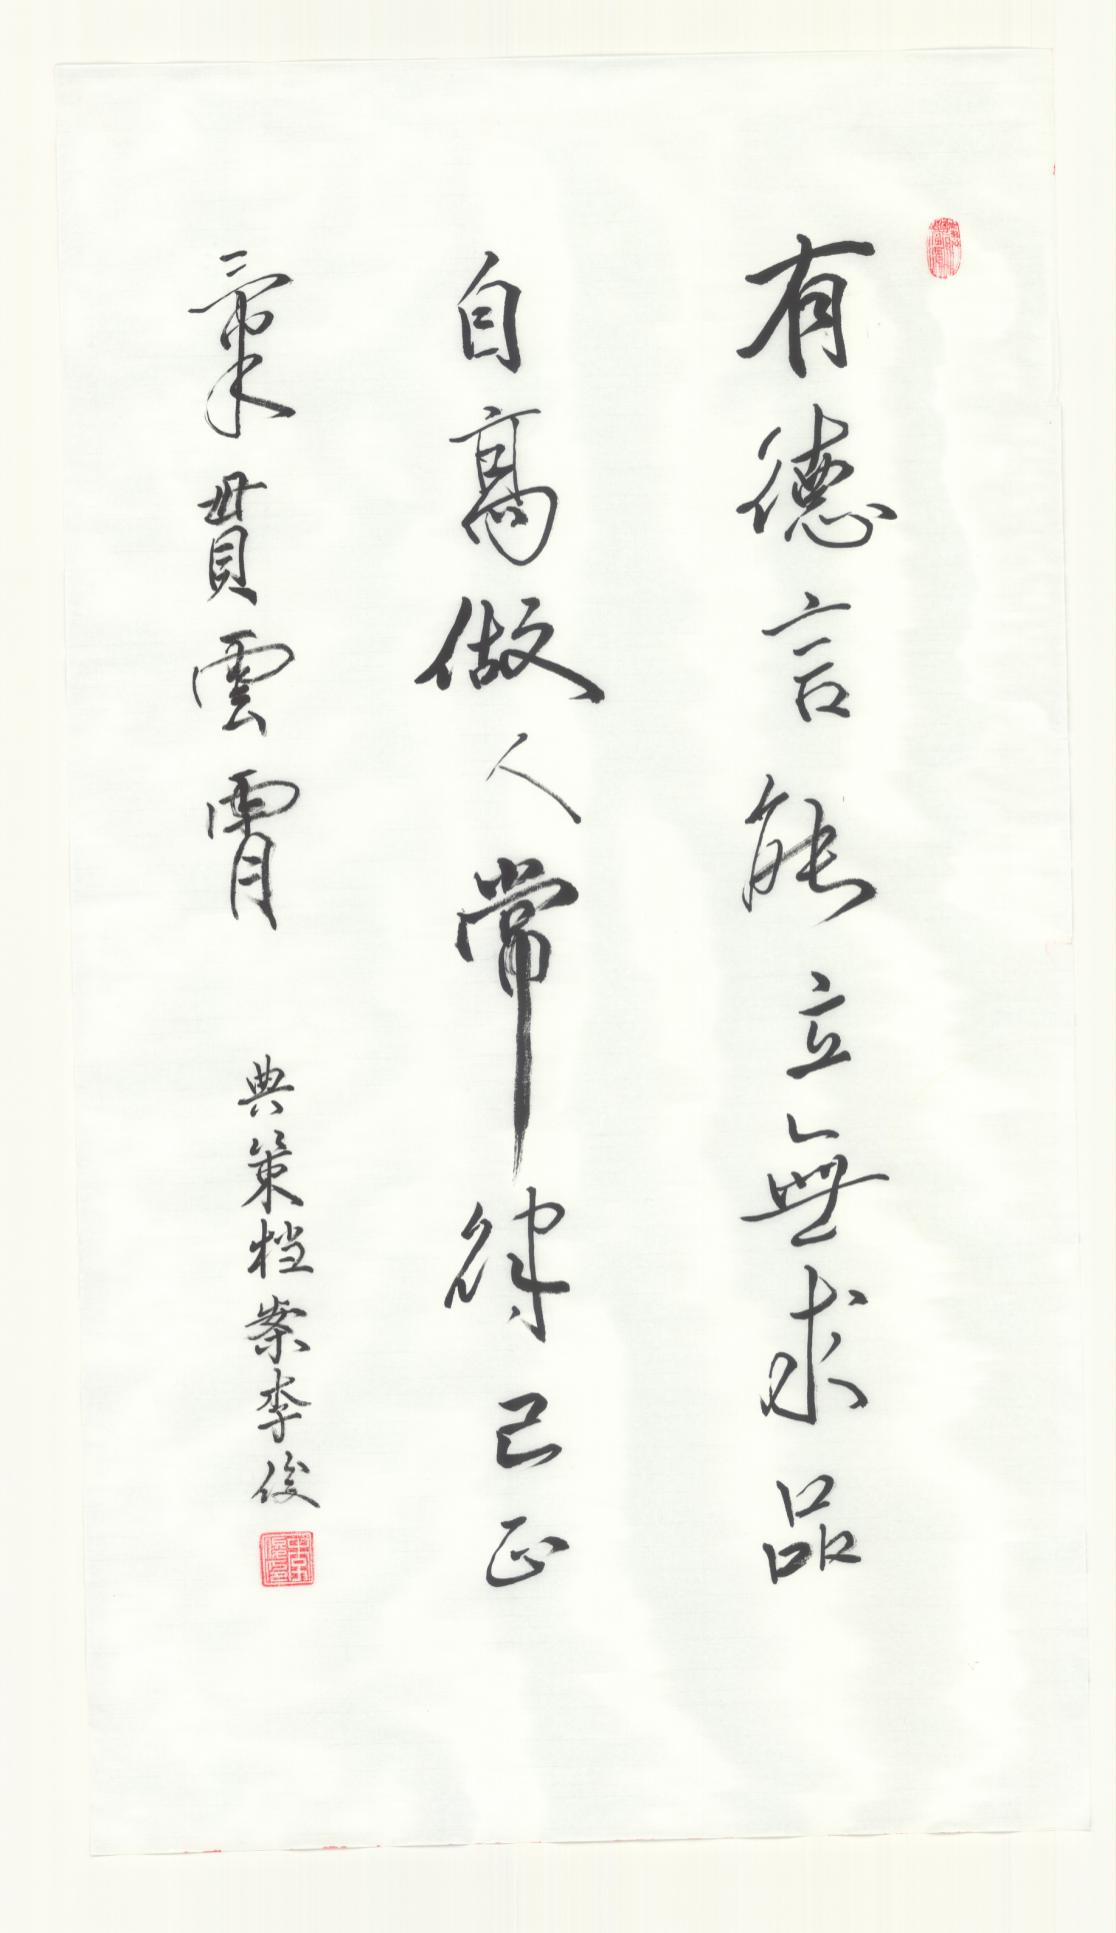 有德言能立無求品
自高做人常律己正
氣貫雲霄
典策档案李俊